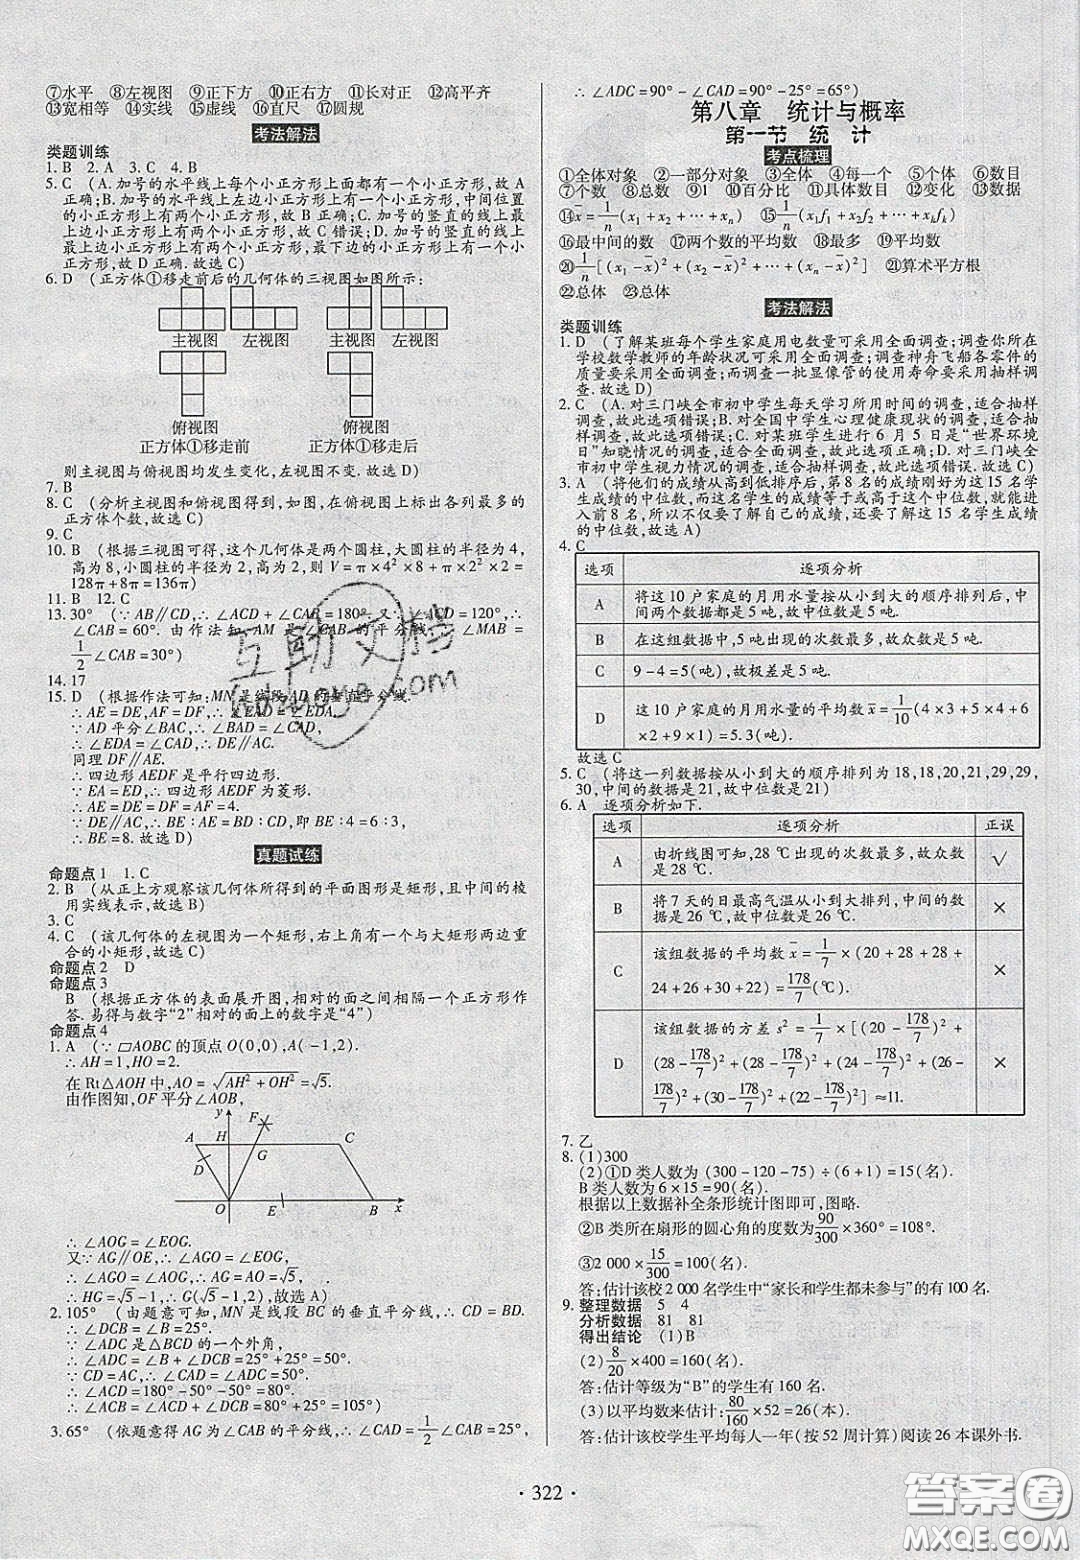 ⑦水平　⑧左视图　⑨正下方　⑩正右方　⑪长对正　⑫高平齐
⑬宽相等　⑭实线　⑮虚线　⑯直尺　⑰圆规
考法解法
类题训练
1. B　2. A　3. C　4. B
5. C　(A. 加号的水平线上每个小正方形上面都有一个小正方形,故 A
正确;B. 加号的水平线上左边小正方形上有一个小正方形,中间位置
的小正方形上有两个小正方形,故 B 正确;C. 加号的竖直的线上最
上边小正方形上有两个小正方形,故 C 错误;D. 加号的竖直的线上
最上边小正方形上有两个小正方形,最下边的小正方形上有一个小
正方形,故 D 正确.故选 C)
6. D　(正方体①移走前后的几何体的三视图如图所示:
主视图　左视图　主视图　左视图
俯视图　俯视图
正方体①移走前　正方体①移走后
则主视图与俯视图均发生变化,左视图不变.故选 D)
7. B
8. C　(分析主视图和俯视图得到,如图,在俯视图上标出各列最多的
正方体个数,故选 C)
9. C
10. B　(根据三视图可得,这个几何体是两个圆柱,大圆柱的半径为 4,
高为 8,小圆柱的半径为 2,高为 2,则 V=π×4²×8+π×2²×2=
128π+8π=136π)
11. B　12. C
13. 30°　(∵ AB∥CD,∴ ∠ACD+∠CAB=180°.又∵ ∠ACD=120°,∴
∠CAB=60°. 由作法知,AM 是∠CAB 的平分线,∴ ∠MAB=
1/2∠CAB=30°)
14. 17
15. D　(根据作法可知:MN 是线段 AD 的垂直平分线.
∴ AE=DE,AF=DF,∴ ∠EAD=∠EDA.
∵ AD 平分∠BAC,∴ ∠BAD=∠CAD,
∴ ∠EDA=∠CAD,∴ DE∥AC.
同理 DF∥AE.
∴ 四边形 AEDF 是平行四边形.
∵ EA=ED,∴ 四边形 AEDF 为菱形.
∴ AE=DE=DF=AF=4.
∵ DE∥AC,∴ BE:AE=BD:CD,即 BE:4=6:3,
∴ BE=8.故选 D)
真题试练
命题点 1　1. C
2. B　(从正上方观察该几何体所得到的平面图形是矩形,且中间的棱
用实线表示,故选 B)
3. C
4. C　(该几何体的左视图为一个矩形,右上角有一个与大矩形两边重
合的小矩形,故选 C)
命题点 2　D
命题点 3
B　(根据正方体的表面展开图,相对的面之间相隔一个正方形作
答.易得与数字“2”相对的面上的数字是“4”)
命题点 4
1. A　(∵ ▱AOBC 的顶点 O(0,0),A(-1,2).
∴ AH=1,HO=2.
在 Rt△AOH 中,AO=√(AH²+OH²)=√5.
由作图知,OF 平分∠AOB,
y　F
A　H　C
D　G
O　E　B　x
∴ ∠AOG=∠EOG.
又∵ AG∥OE,∴ ∠AGO=∠EOG,
∴ ∠AGO=∠AOG,∴ AG=AO=√5,
∴ HG=√5-1,∴ G(√5-1,2),故选 A)
2. 105°　(由题意可知,MN 是线段 BC 的垂直平分线,∴ CD=BD.
∴ ∠DCB=∠B=25°.
∵ ∠ADC 是△BCD 的一个外角,
∴ ∠ADC=∠B+∠DCB=25°+25°=50°.
∵ CD=AC,∴ ∠CAD=∠ADC=50°,
∴ ∠ACD=180°-50°-50°=80°.
∴ ∠ACB=∠ACD+∠DCB=80°+25°=105°)
3. 65°　(依题意得 AG 为∠CAB 的平分线,∴ ∠CAD=1/2∠CAB=25°,
∴ ∠ADC=90°-∠CAD=90°-25°=65°)
第八章　统计与概率
第一节　统　计
考点梳理
①全体对象　②一部分对象　③全体　④每一个　⑤个体　⑥数目
⑦个数　⑧总数　⑨1　⑩百分比　⑪具体数目　⑫变化　⑬数据
⑭x̄=1/n(x₁+x₂+…+xₙ)　⑮1/n(x₁f₁+x₂f₂+…+xₖfₖ)
⑯最中间的数　⑰两个数的平均数　⑱最多　⑲平均数
⑳1/n[(x₁-x̄)²+(x₂-x̄)²+…+(xₙ-x̄)²]　㉑算术平方根
㉒总体　㉓总体
考法解法
类题训练
1. D　(了解某班每个学生家庭用电数量可采用全面调查;调查你所在
学校数学教师的年龄状况可采用全面调查;调查神舟飞船各零件的
质量要采用全面调查;而调查一批显像管的使用寿命要采用抽样调
查.故选 D)
2. C　(A. 对三门峡全市初中学生每天学习所用时间的调查,适合抽样
调查,故此选项错误;B. 对全国中学生心理健康现状的调查,适合抽
样调查,故此选项错误;C. 对某班学生进行 6 月 5 日是“世界环境
日”知晓情况的调查,适合全面调查,故此选项正确;D. 对三门峡全
市初中学生视力情况的调查,适合抽样调查,故此选项错误.故选 C)
3. A　(将他们的成绩从高到低排序后,第 8 名的成绩刚好为这 15 名学
生成绩的中位数,而这名学生的成绩等于或高于这个中位数,就能进
入前 8 名,所以不仅要了解自己的成绩,还要了解这 15 名学生成绩
的中位数,故选 A)
4. C
选项　逐项分析
A　将这 10 户家庭的月用水量按从小到大的顺序排列后,中
间两个数据都是 5 吨,故中位数是 5 吨.
B　在这组数据中,5 吨出现的次数最多,故众数是 5 吨.
C　9-4=5(吨),故极差是 5 吨.
D　这 10 户家庭的月用水量的平均数 x̄=1/10(4×3+5×4+6
×2+9×1)=5.3(吨).
故选 C
5. C　(将这一列数据按从小到大的顺序排列为 18,18,20,21,29,29,
30,中间的数据是 21,故中位数是 21)
6. A　逐项分析如下.
选项　逐项分析　正误
A　由折线图可知,28 ℃出现的次数最多,故众数
是 28 ℃.　√
B　将 7 天的日最高气温从小到大排列,中间的数
据是 26 ℃,故中位数是 26 ℃.　×
C　该组数据的平均数 x̄=1/7×(20+28+28+
24+26+30+22)=178/7(℃).　×
D　该组数据的方差 s²=1/7×[(20-178/7)²+
(28-178/7)²+(28-178/7)²+(24-178/7)²+(26-
178/7)²+(30-178/7)²+(22-178/7)²]≈11.　×
7. 乙
8. (1)300
(2)①D 类人数为 (300-120-75)÷(6+1)=15(名).
B 类人数为 6×15=90(名).
根据以上数据补全条形统计图即可,图略.
②B 类所在扇形的圆心角的度数为90/300×360°=108°.
③2 000×15/300=100(名).
答:估计该校 2 000 名学生中“家长和学生都未参与”的有 100 名.
9. 整理数据　5　4
分析数据　81　81
得出结论　(1)B
(2)8/20×400=160(名).
答:估计等级为“B”的学生有 160 名.
(3)以平均数来估计:80/160×52=26(本).
答:估计该校学生平均每人一年(按 52 周计算)阅读 26 本课外书.
· 322 ·
互助文档
hdzuoye.com
答案圈
MXQE.COM